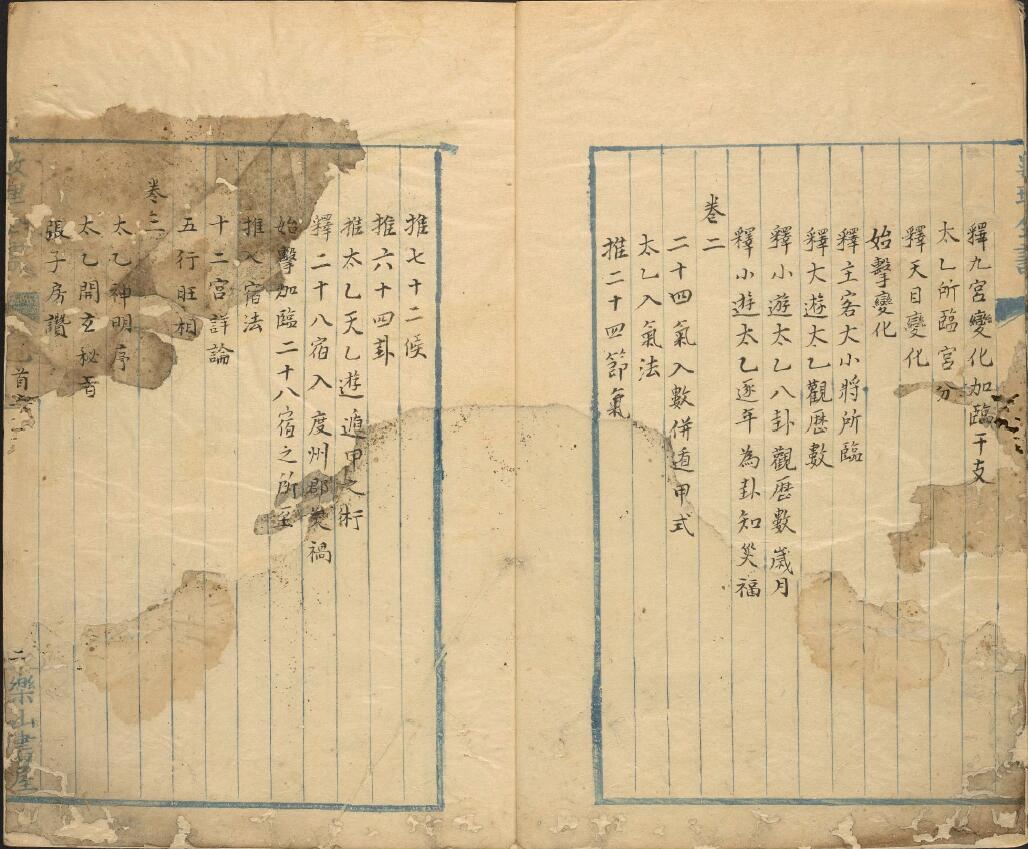 釋九宮變化加臨干支
太乙所臨宮分
釋天目變化
始擊變化
釋主客大小將所臨
釋大遊太乙觀歷數
釋小遊太乙八卦觀歷數歲月
釋小遊太乙逐年為卦知災福
卷二
二十四氣入數併遁甲式
太乙入氣法
推二十四節氣
推七十二候
推六十四卦
推太乙天乙遊遁甲之術
釋二十八宿入度州郡災禍
始擊加臨二十八宿之所至
推入宿法
十二宮詳論
五行旺相
卷三
太乙神明序
太乙開玄秘旨
張子房讚
首
二
樂山書屋